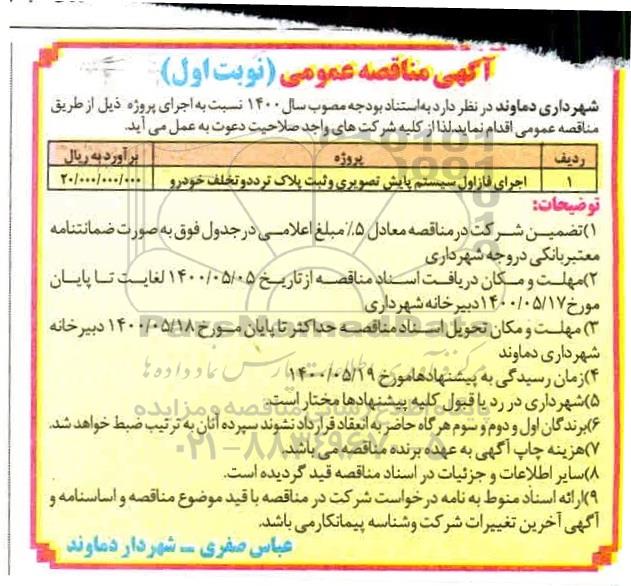 آگهی مناقصه عمومی (نوبت اول)
شهرداری دماوند در نظر دارد به استناد بودجه مصوب سال ۱۴۰۰ نسبت به اجرای پروژه ذیل از طریق
مناقصه عمومی اقدام نماید.لذا از کلیه شرکت های واجد صلاحیت دعوت به عمل می آید.
ردیف پروژه برآورد به ریال
۱ اجرای فاز اول سیستم پایش تصویری و ثبت پلاک تردد و تخلف خودرو ۲۰/۰۰۰/۰۰۰/۰۰۰
توضیحات:
۱)تضمین شرکت در مناقصه معادل ۵٪ مبلغ اعلامی در جدول فوق به صورت ضمانتنامه
معتبر بانکی در وجه شهرداری
۲)مهلت و مکان دریافت اسناد مناقصه از تاریخ ۱۴۰۰/۰۵/۰۵ لغایت تا پایان
مورخ ۱۴۰۰/۰۵/۱۷ دبیرخانه شهرداری
۳) مهلت و مکان تحویل اسناد مناقصه حداکثر تا پایان مورخ ۱۴۰۰/۰۵/۱۸ دبیرخانه
شهرداری دماوند
۴)زمان رسیدگی به پیشنهادها مورخ ۱۴۰۰/۰۵/۱۹
۵)شهرداری در رد یا قبول کلیه پیشنهادها مختار است.
۶)برندگان اول و دوم و سوم هرگاه حاضر به انعقاد قرارداد نشوند سپرده آنان به ترتیب ضبط خواهد شد.
۷)هزینه چاپ آگهی به عهده برنده مناقصه می باشد.
۸)سایر اطلاعات و جزئیات در اسناد مناقصه قید گردیده است.
۹)ارائه اسناد منوط به نامه درخواست شرکت در مناقصه با قید موضوع مناقصه و اساسنامه و
آگهی آخرین تغییرات شرکت و شناسه پیمانکار می باشد.
عباس صفری - شهردار دماوند
ParsNamadData
پایگاه اطلاع رسانی مناقصه و مزایده
۰۲۱-۸۸۳۴۹۶۷۰-۵